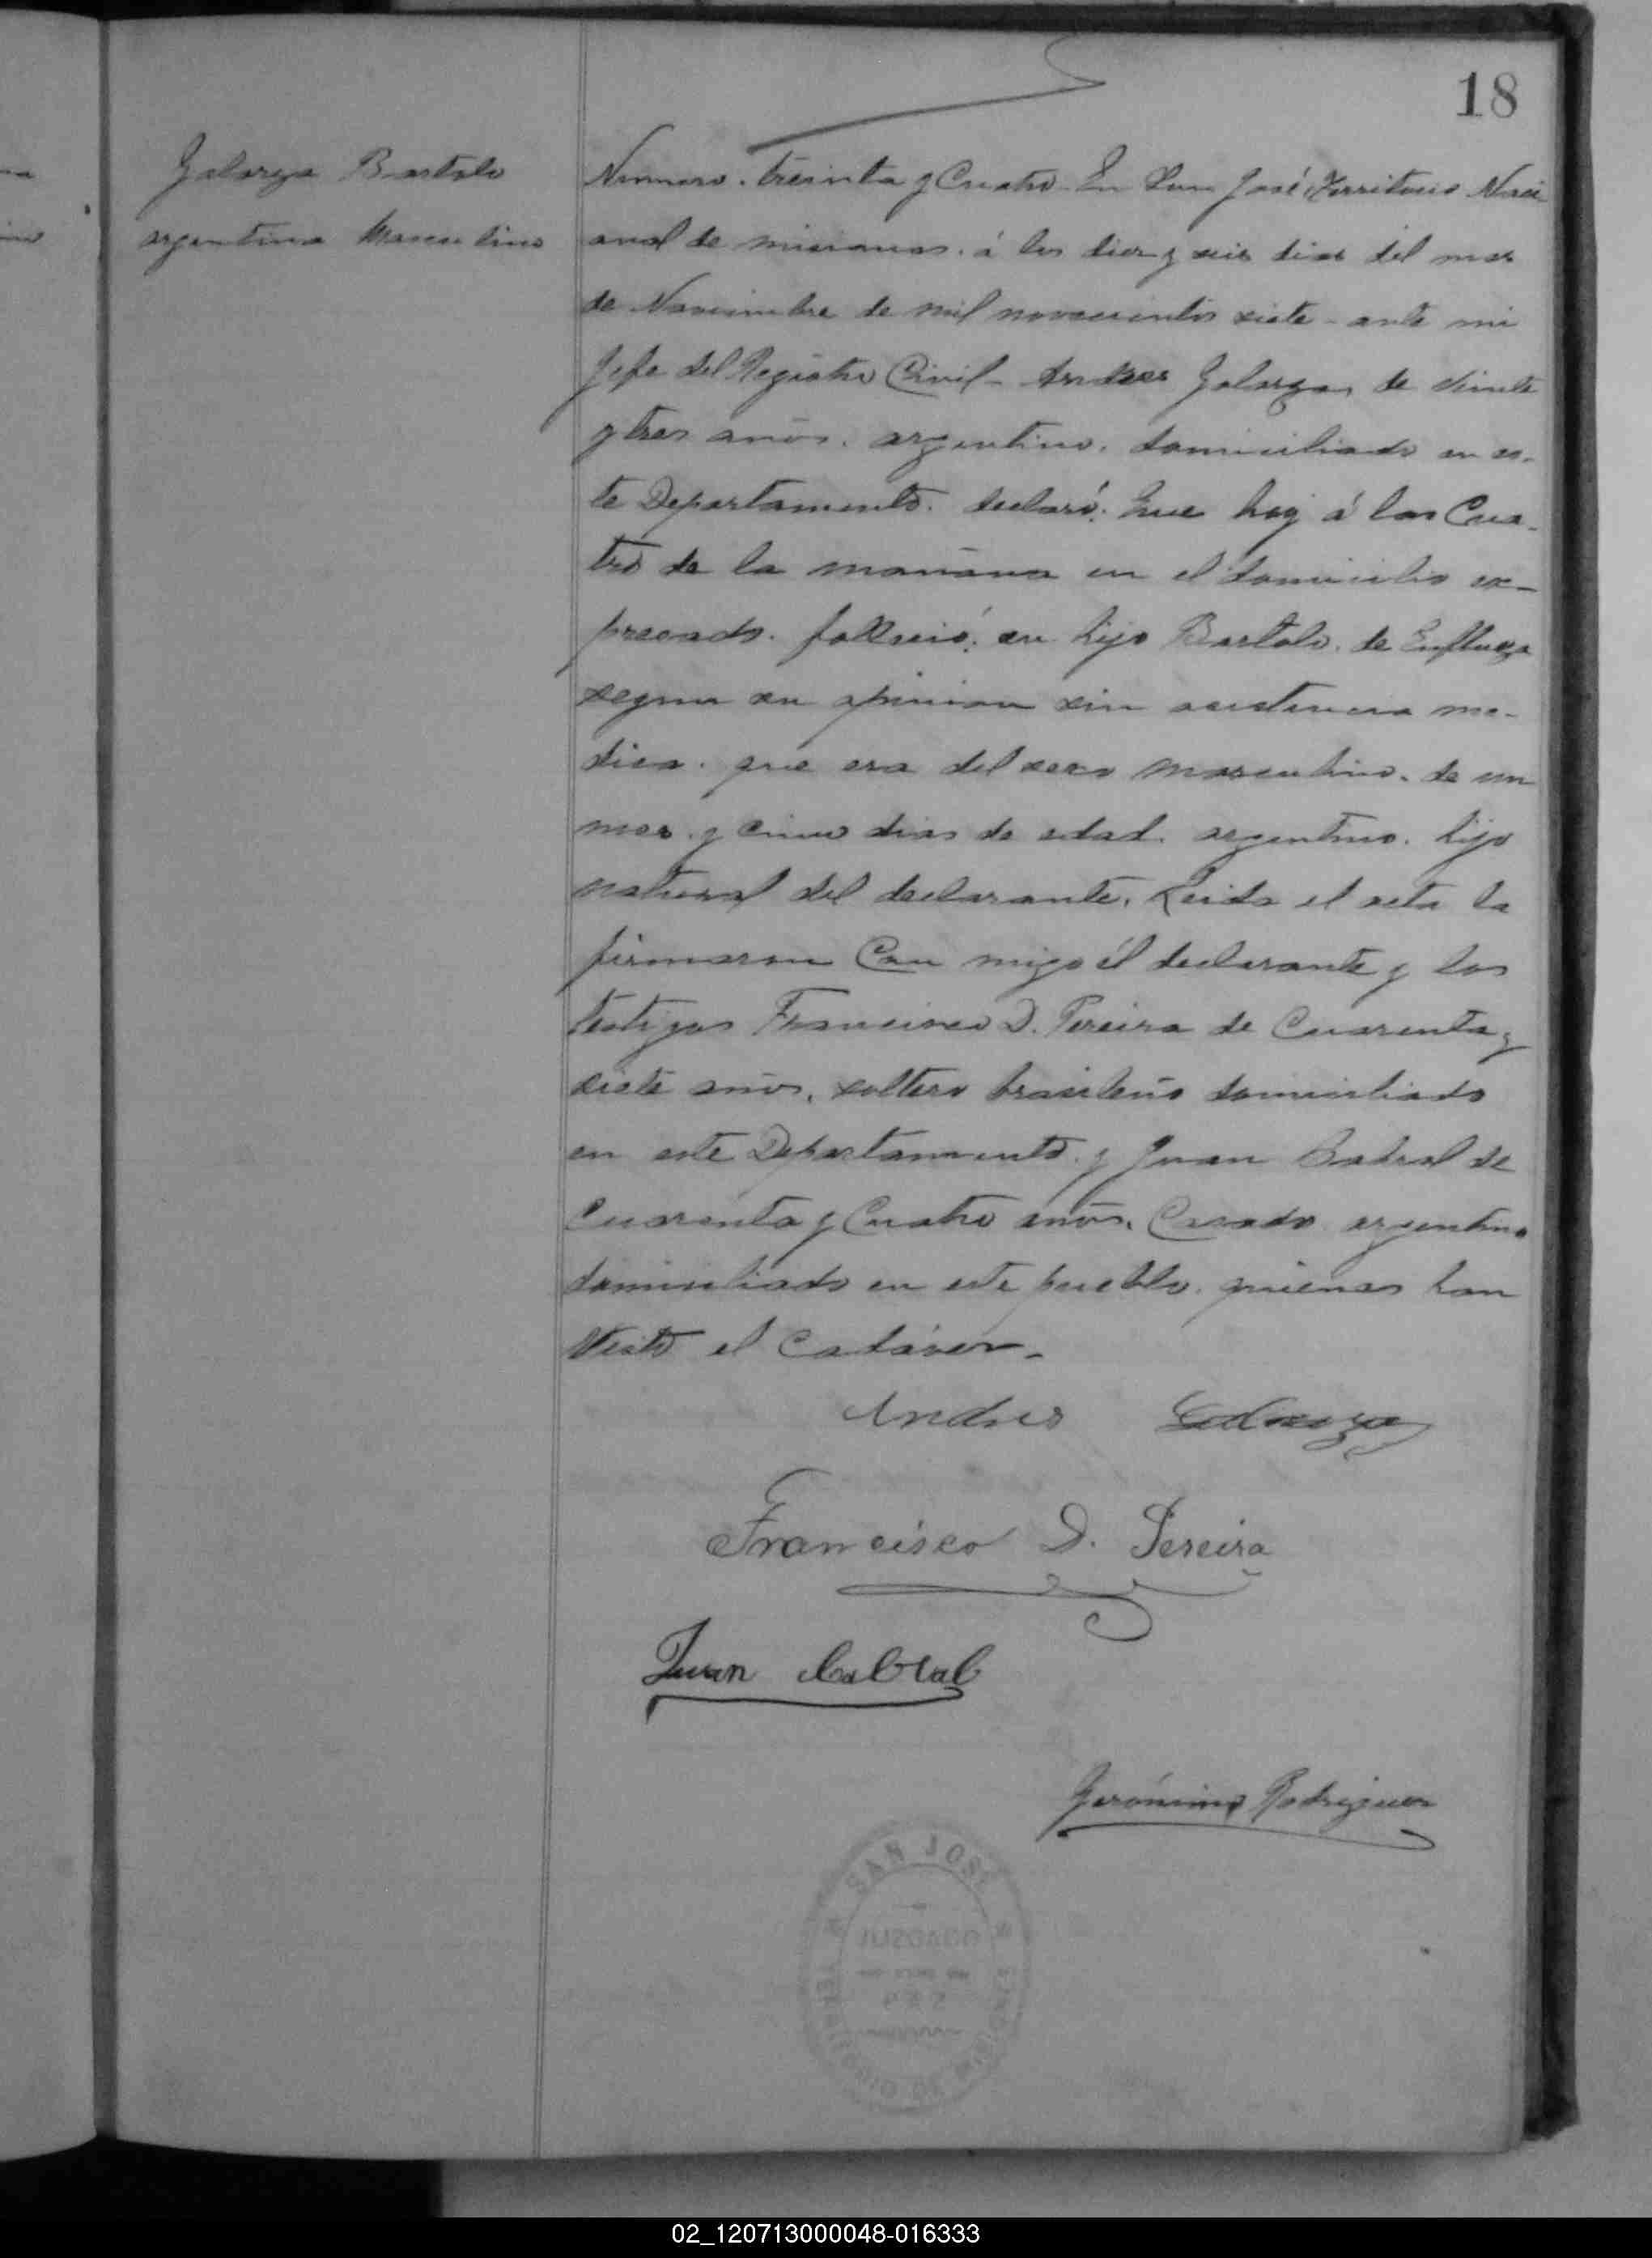 18
Galarza Bartolo
argentino Masculino
Numero. treinta y Cuatro. En San José, Territorio Naci-
onal de misiones. á los diez y seis dias del mes
de Noviembre de mil novecientos siete - ante mi
Jefe del Registro Civil - Andres Galarza, de veinte
y tres años. argentino. domiciliado en es-
te Departamento. declaró: Que hoy á las Cua-
tro de la mañana en el domicilio ex-
presado. falleció: su hijo Bartolo. de
segun su opinion sin asistencia me-
dica. que era del sexo masculino. de un
mes. y cinco dias de edad. argentino. hijo
natural del declarante. Leida el acta la
firmaron Con migo él declarante y los
testigos Francisco D. Pereira de Cuarenta y
siete años, soltero brasileño domiciliado
en este Departamento. y Juan Cabral de
Cuarenta y Cuatro años. Casado argentino
domiciliado en este pueblo. quienes han
Visto el Cadáver.
Andres Galarza
Francisco D. Pereira
Juan Cabral
Gerónimo Rodriguez
SAN JOSE
JUZGADO
PAZ
TERRITORIO DE MISIONES
02_120713000048-016333